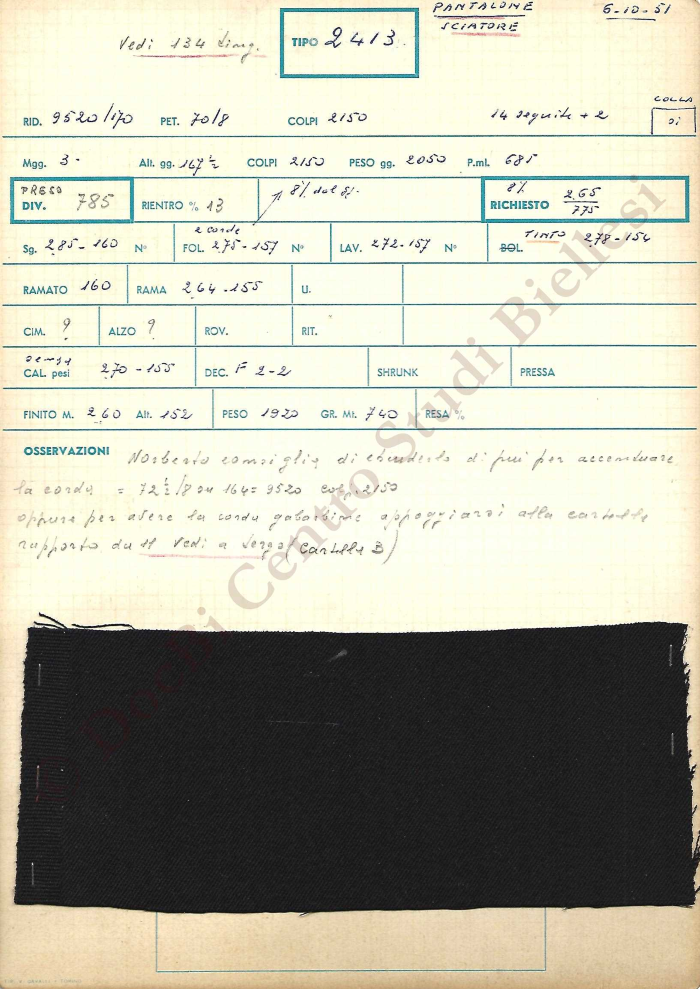 PANTALONE 6-10-51
SCIATORE
Vedi 134 TIPO 2413
COLLA
RID. 9520/170 PET. 70/8 COLPI 2150 14 seguite + 2 si
Mgg. 3- Alt. gg. 167 1/2 COLPI 2150 PESO gg. 2050 P.ml. 685
PRESO
DIV. 785 RIENTRO % 13 8% dal 8%. 8% RICHIESTO 265/775
2 corde TINTO
Sg. 285-160 N° FOL. 275-157 N° LAV. 272-157 N° BOL. 278-154
RAMATO 160 RAMA 264-155 U.
CIM. ? ALZO ? ROV. RIT.
senza
CAL. pesi 270-155 DEC. F 2-2 SHRUNK PRESSA
FINITO M. 260 Alt. 152 PESO 1920 GR. Mt. 740 RESA %
OSSERVAZIONI Norberto consiglia di chiuderlo di più per accentuare
la corda = 72 1/2/8 su 164 = 9520 colpi 2150
oppure per avere la corda gabardine appoggiarsi alla cartella
rapporto da 11 Vedi a tergo (Cartella B)
© DocBi Centro Studi Biellesi